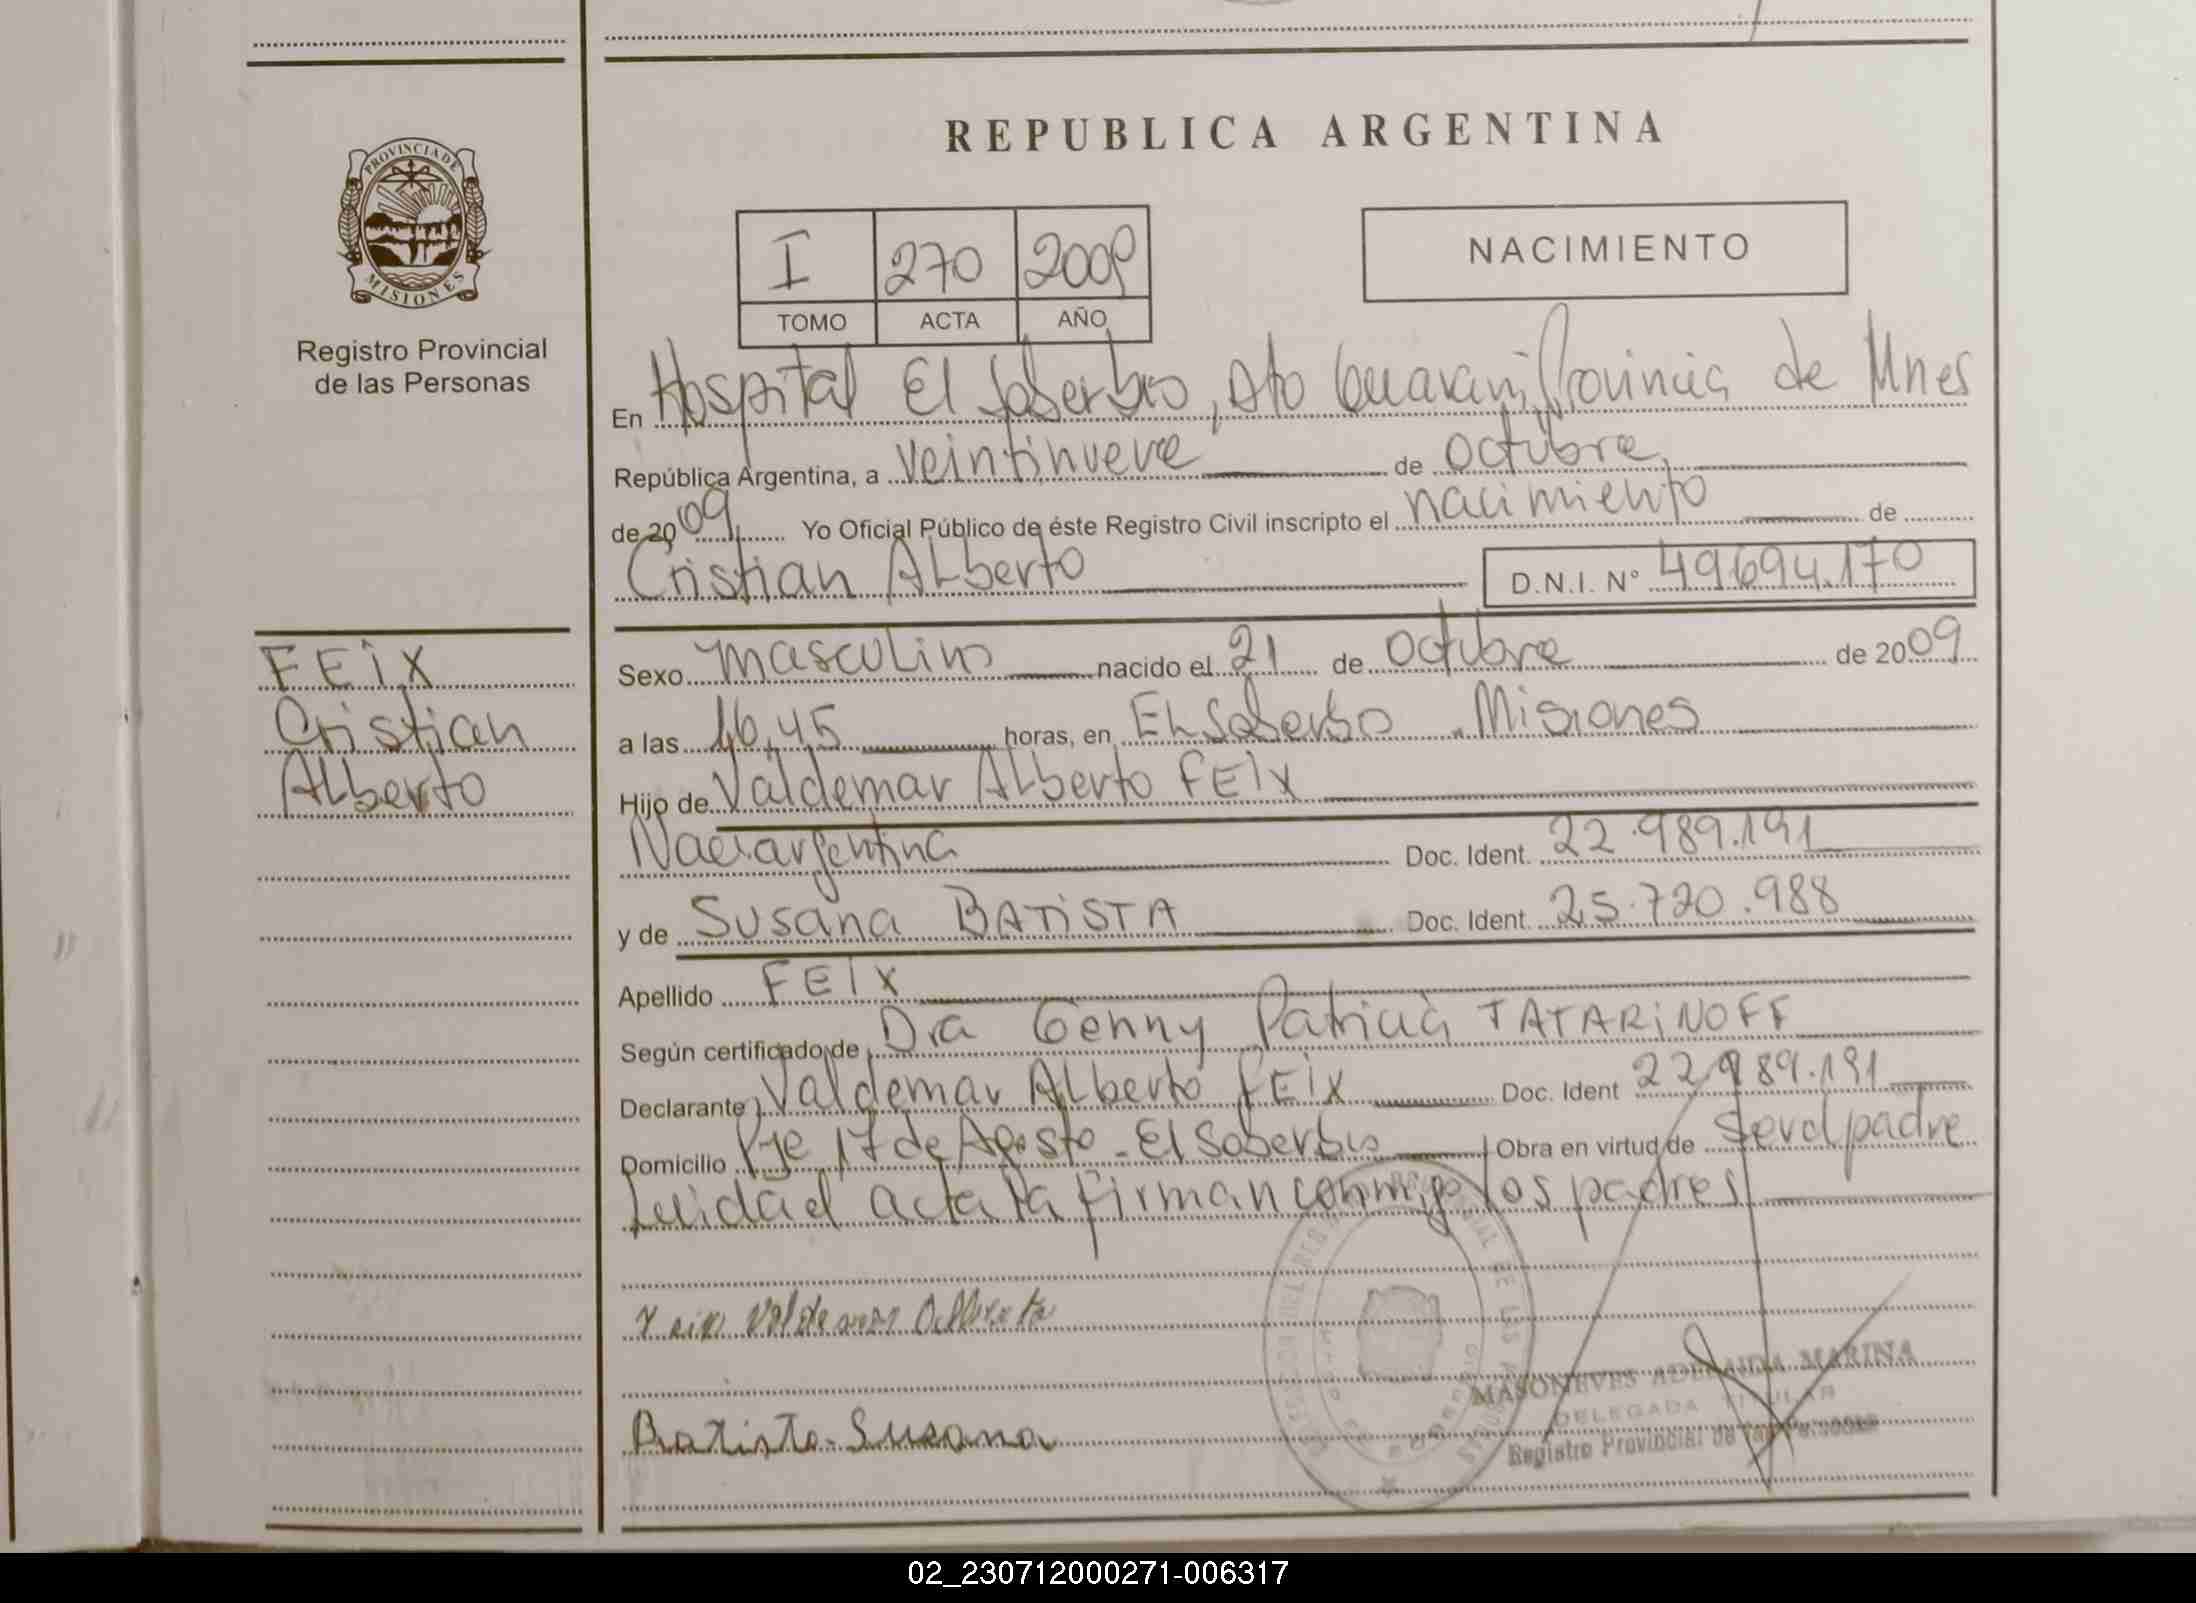 REPUBLICA ARGENTINA
PROVINCIA DE
MISIONES
Registro Provincial
de las Personas
I 270 2009
TOMO ACTA AÑO
NACIMIENTO
En Hospital El Soberbio, Dto Guarani, Provincia de Mnes
República Argentina, a veintinueve de octubre,
de 2009, Yo Oficial Público de éste Registro Civil inscripto el nacimiento de
Cristian Alberto D.N.I. N° 49694.170
FEIX
Cristian
Alberto
Sexo masculino nacido el 21 de octubre de 2009
a las 16,45 horas, en El Soberbio - Misiones
Hijo de Valdemar Alberto FEIX
Nac. argentina Doc. Ident. 22.989.191
y de Susana BATISTA Doc. Ident. 25.720.988
Apellido FEIX
Según certificado de Dra Genny Patricia TATARINOFF
Declarante Valdemar Alberto FEIX Doc. Ident 22.989.191
Domicilio Pje 17 de Agosto - El Soberbio Obra en virtud de ser el padre
Leída el acta la firman conmigo los padres
Feix Valdemar Alberto
Batista Susana
MASONEVES ADELAIDA MARINA
DELEGADA TITULAR
Registro Provincial de las Personas
02_230712000271-006317